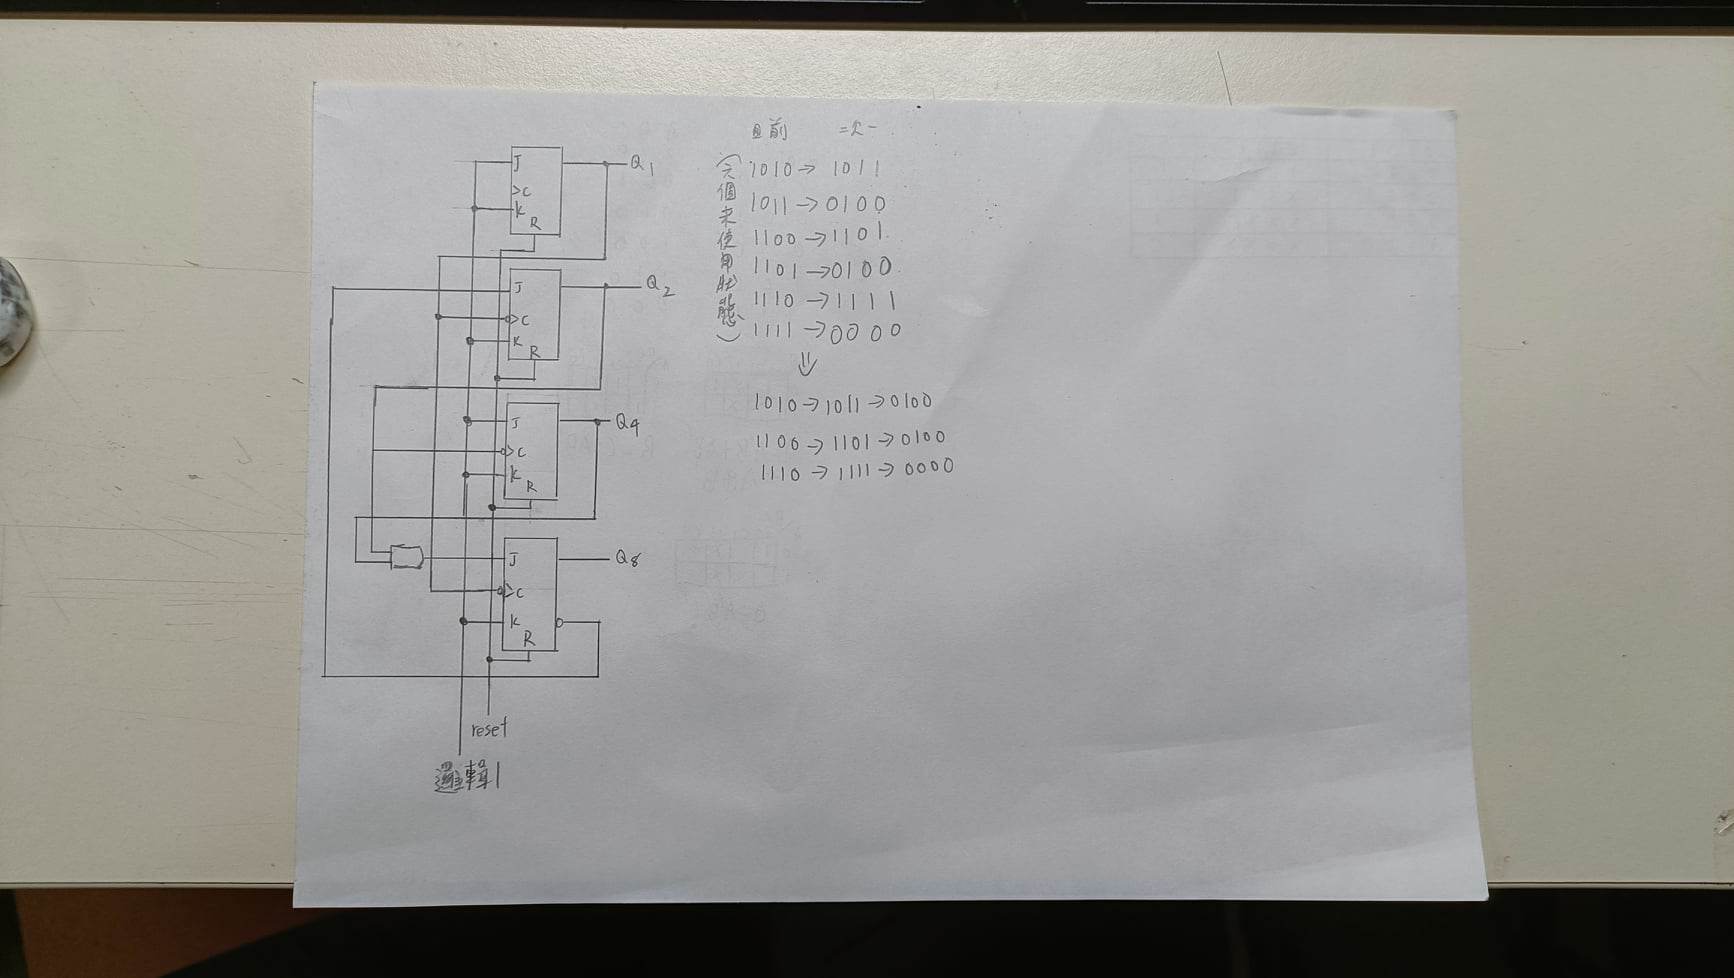 J
C
K
R
Q1
J
C
K
R
Q2
J
C
K
R
Q4
J
C
K
R
Q8
reset
邏輯1
目前 二次一
(六個未使用狀態)
1010→1011
1011→0100
1100→1101
1101→0100
1110→1111
1111→0000
⇓
1010→1011→0100
1100→1101→0100
1110→1111→0000